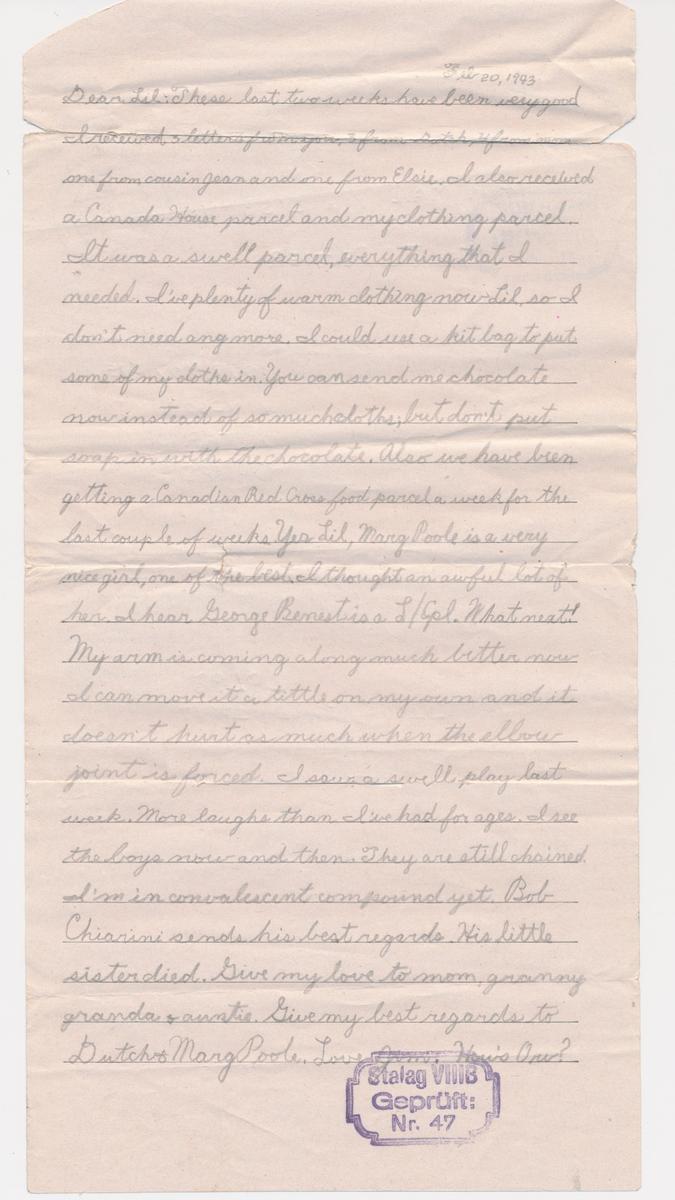 Feb 20, 1943
Dear Lil: These last two weeks have been very good
I received 5 letters from you, 3 from Dutch, 4 from mom
one from cousin Jean and one from Elsie. I also received
a Canada House parcel and my clothing parcel.
It was a swell parcel, everything that I
needed. I've plenty of warm clothing now Lil, so I
don't need any more. I could use a kit bag to put
some of my cloths in. You can send me chocolate
now instead of so much cloths; but don't put
soap in with the chocolate. Also we have been
getting a Canadian Red Cross food parcel a week for the
last couple of weeks. Yes Lil, Marg Poole is a very
nice girl, one of the best. I thought an awful lot of
her. I hear George Benest is a L/Cpl. What neat!
My arm is coming along much better now
I can move it a tittle on my own and it
doesn't hurt as much when the elbow
joint is forced. I saw a swell play last
week. More laughs than I've had for ages. I see
the boys now and then. They are still chained
I'm in convalescent compound yet. Bob
Chiarini sends his best regards. His little
sister died. Give my love to mom, granny
granda & auntie. Give my best regards to
Dutch & Marg Poole. Love Jim. How's Orv?
Stalag VIIIB
Geprüft:
Nr. 47